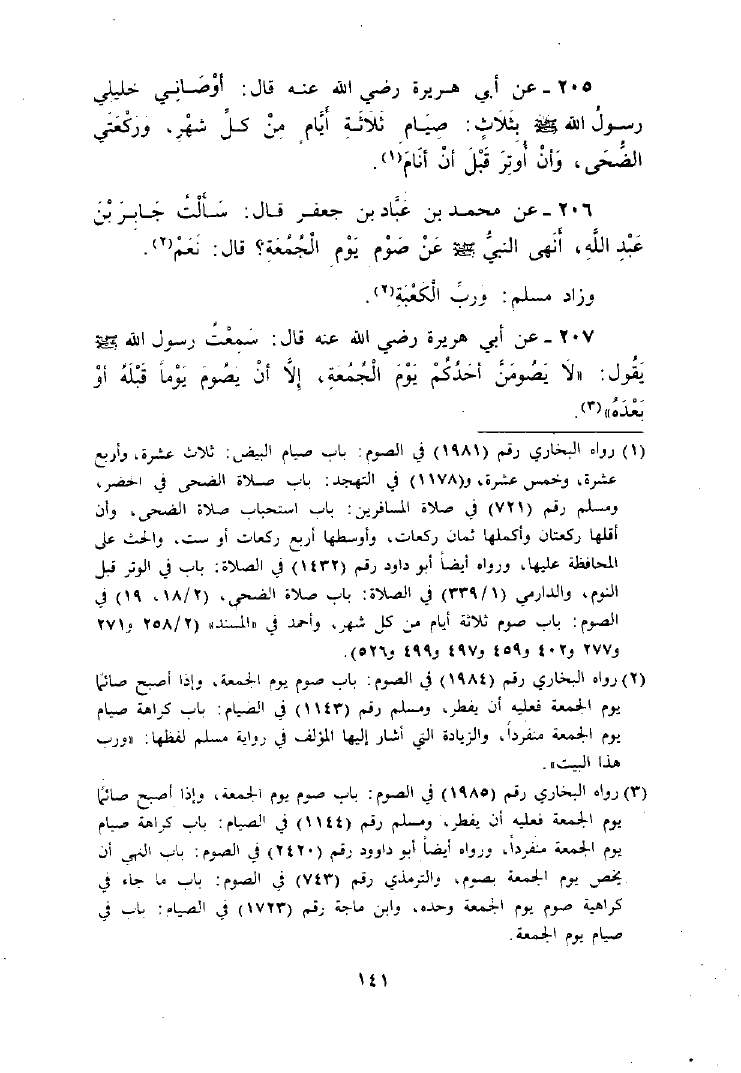 ٢٠٥ ـ عن أبي هريرة رضي الله عنه قال: أَوْصَانِي خليلي
رسولُ الله ﷺ بِثَلَاثٍ: صِيَامِ ثَلَاثَةِ أَيَّامٍ مِنْ كلِّ شَهْرٍ، وَرَكْعَتَي
الضُّحَى، وَأَنْ أُوتِرَ قَبْلَ أنْ أنَامَ(١).
٢٠٦ ـ عن محمد بن عَبَّاد بن جعفر قال: سَأَلْتُ جَابِرَ بْنَ
عَبْدِ اللَّهِ، أَنَهى النبيُّ ﷺ عَنْ صَوْمِ يَوْمِ الْجُمُعَةِ؟ قال: نَعَمْ(٢).
وزاد مسلم: وَرَبِّ الْكَعْبَةِ(٢).
٢٠٧ ـ عن أبي هريرة رضي الله عنه قال: سَمِعْتُ رسول الله ﷺ
يَقُول: «لَا يَصُومَنَّ أَحَدُكُمْ يَوْمَ الْجُمُعَةِ، إلَّا أَنْ يَصُومَ يَوْماً قَبْلَهُ أَوْ
بَعْدَهُ»(٣).
(١) رواه البخاري رقم (١٩٨١) في الصوم: باب صيام البيض: ثلاث عشرة، وأربع
عشرة، وخمس عشرة، و(١١٧٨) في التهجد: باب صلاة الضحى في الحضر،
ومسلم رقم (٧٢١) في صلاة المسافرين: باب استحباب صلاة الضحى، وأن
أقلها ركعتان وأكملها ثمان ركعات، وأوسطها أربع ركعات أو ست، والحث على
المحافظة عليها، ورواه أيضاً أبو داود رقم (١٤٣٢) في الصلاة: باب في الوتر قبل
النوم، والدارمي (٣٣٩/١) في الصلاة: باب صلاة الضحى، (١٨/٢، ١٩) في
الصوم: باب صوم ثلاثة أيام من كل شهر، وأحمد في «المسند» (٢٥٨/٢ و٢٧١
و٢٧٧ و٤٠٢ و٤٥٩ و٤٩٧ و٤٩٩ و٥٢٦).
(٢) رواه البخاري رقم (١٩٨٤) في الصوم: باب صوم يوم الجمعة، وإذا أصبح صائمًا
يوم الجمعة فعليه أن يفطر، ومسلم رقم (١١٤٣) في الصيام: باب كراهة صيام
يوم الجمعة منفرداً، والزيادة التي أشار إليها المؤلف في رواية مسلم لفظها: «ورب
هذا البيت».
(٣) رواه البخاري رقم (١٩٨٥) في الصوم: باب صوم يوم الجمعة، وإذا أصبح صائمًا
يوم الجمعة فعليه أن يفطر، ومسلم رقم (١١٤٤) في الصيام: باب كراهة صيام
يوم الجمعة منفرداً، ورواه أيضاً أبو داوود رقم (٢٤٢٠) في الصوم: باب النهي أن
يخص يوم الجمعة بصوم، والترمذي رقم (٧٤٣) في الصوم: باب ما جاء في
كراهية صوم يوم الجمعة وحده، وابن ماجة رقم (١٧٢٣) في الصيام: باب في
صيام يوم الجمعة.
١٤١